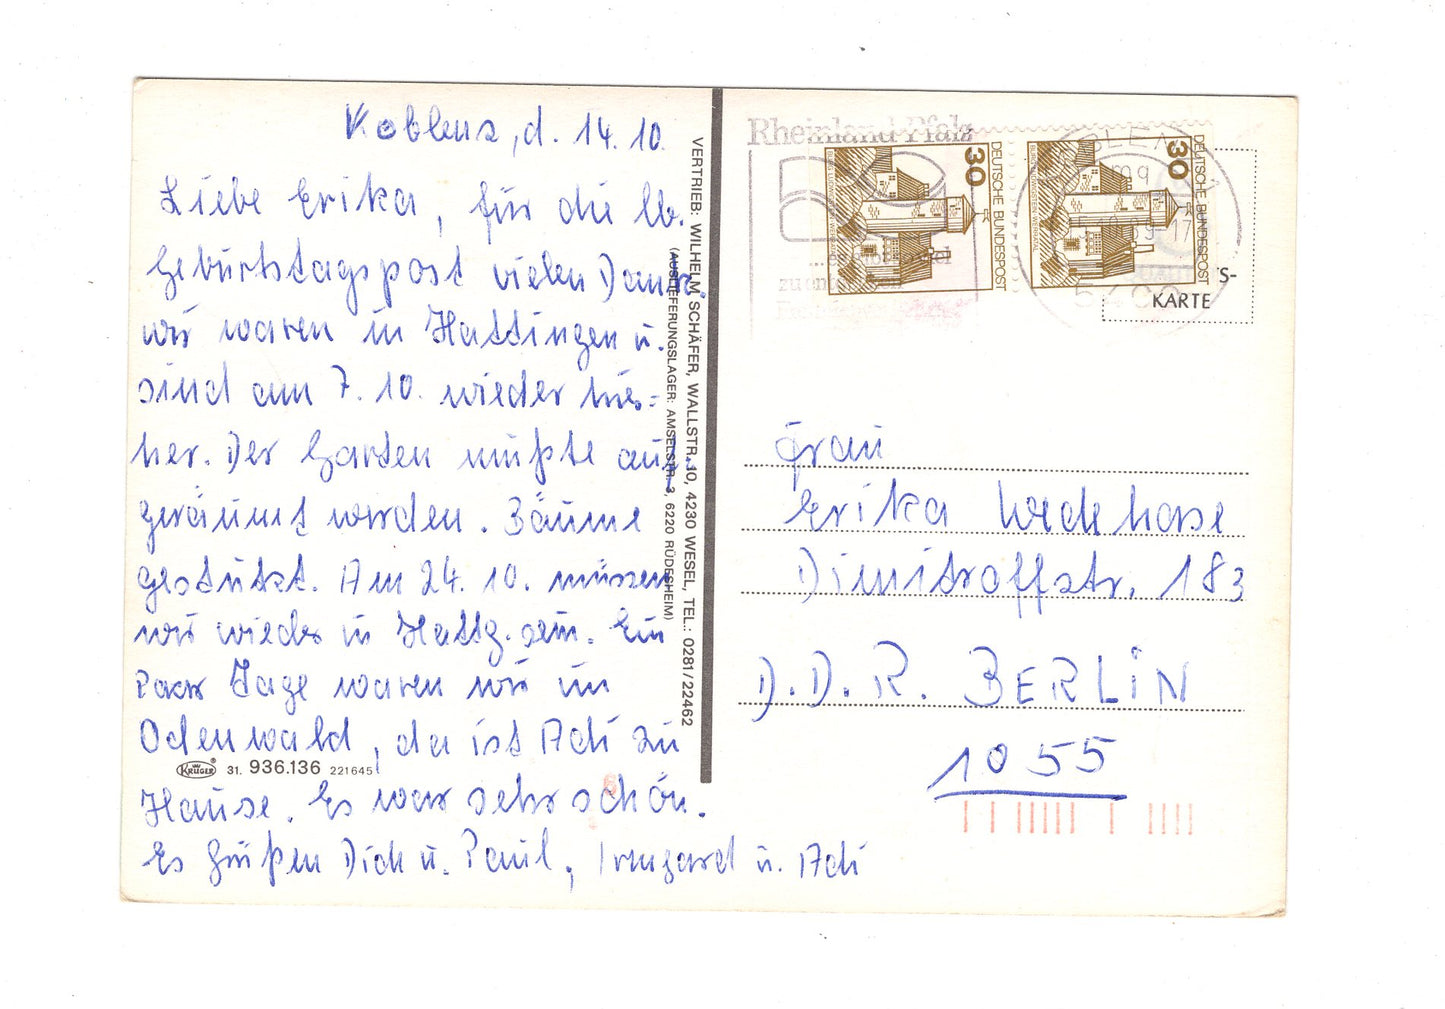 Koblenz, d. 14. 10.
Liebe Erika, für die lb.
Geburtstagspost vielen Dank.
wir waren in Hattingen u.
sind am 7. 10. wieder hie=
her. Der Garten mußte auf
geräumt werden. Bäume
gestutzt. Am 24. 10. müssen
wir wieder in Hattg. sein. Ein
Paar Tage waren wir im
Odenwald, da ist Adi zu
Hause. Es war sehr schön.
Es Grüßen Dich u. Paul, Irmgard u. Adi
KRÜGER ® 31. 936.136 221645
VERTRIEB: WILHELM SCHÄFER, WALLSTR. 10, 4230 WESEL, TEL.: 0281/22462
(AUSLIEFERUNGSLAGER: AMSELSTR. 3, 6220 RÜDESHEIM)
Rheinland-Pfalz
zu entdecken
30 DEUTSCHE BUNDESPOST
30 DEUTSCHE BUNDESPOST
5400
S-
KARTE
Frau
Erika Wedehase
Dimitroffstr. 183
D.D.R. BERLiN
1055